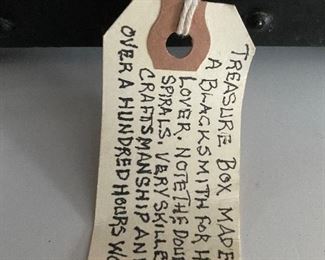 TREASURE BOX MADE
A BLACKSMITH FOR H
LOVER. NOTE THE DOU
SPIRALS. VERY SKILLE
CRAFTSMANSHIP AN
OVER A HUNDRED HOURS WO